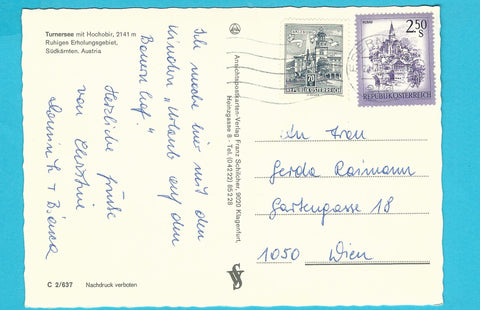 Turnersee mit Hochobir, 2141 m
Ruhiges Erholungsgebiet,
Südkärnten, Austria
Ich mache hier mit den
Kindern „Urlaub auf dem
Bauernhof".
Herzliche Grüße
von Christine
Dominik + Bianca
C 2/637 Nachdruck verboten
Ansichtspostkarten-Verlag Franz Schilcher, 9020 Klagenfurt,
Heinzgasse 8 - Tel. (04222) 85 2 28
20
REPUBLIK ÖSTERREICH
MURAU
2.50
S
REPUBLIK ÖSTERREICH
An Frau
Gerda Raimann
Gartengasse 18
1050 Wien